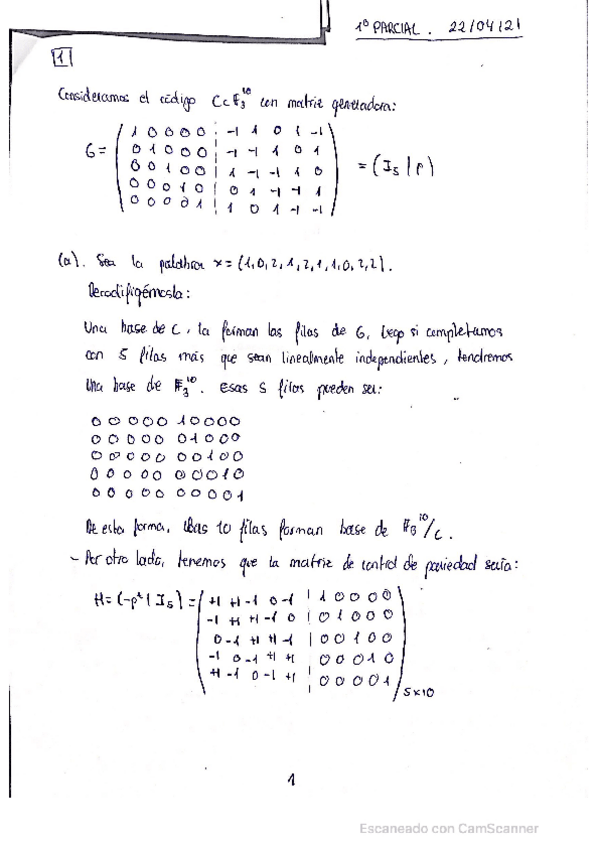 1º PARCIAL. 22/04/21
1
Consideramos el código C⊂F₃¹⁰ con matriz generadora:
G= ( 1 0 0 0 0 | -1 1 0 1 -1
0 1 0 0 0 | -1 -1 1 0 1
0 0 1 0 0 | 1 -1 -1 1 0
0 0 0 1 0 | 0 1 -1 -1 1
0 0 0 0 1 | 1 0 1 -1 -1 ) = (I₅ | P)
(a). Sea la palabra x=(1,0,2,1,2,1,1,0,2,2).
Decodifiquémosla:
Una base de C, la forman las filas de G, luego si completamos
con 5 filas más que sean linealmente independientes, tendremos
una base de F₃¹⁰. Esas 5 filas pueden ser:
0 0 0 0 0 1 0 0 0 0
0 0 0 0 0 0 1 0 0 0
0 0 0 0 0 0 0 1 0 0
0 0 0 0 0 0 0 0 1 0
0 0 0 0 0 0 0 0 0 1
De esta forma, 10 filas forman base de F₃¹⁰/C.
- Por otro lado, tenemos que la matriz de control de paridad sería:
H=(-Pᵗ | I₅) = ( +1 +1 -1 0 -1 | 1 0 0 0 0
-1 +1 +1 -1 0 | 0 1 0 0 0
0 -1 +1 +1 -1 | 0 0 1 0 0
-1 0 -1 +1 +1 | 0 0 0 1 0
+1 -1 0 -1 +1 | 0 0 0 0 1 ) 5x10
1
Escaneado con CamScanner